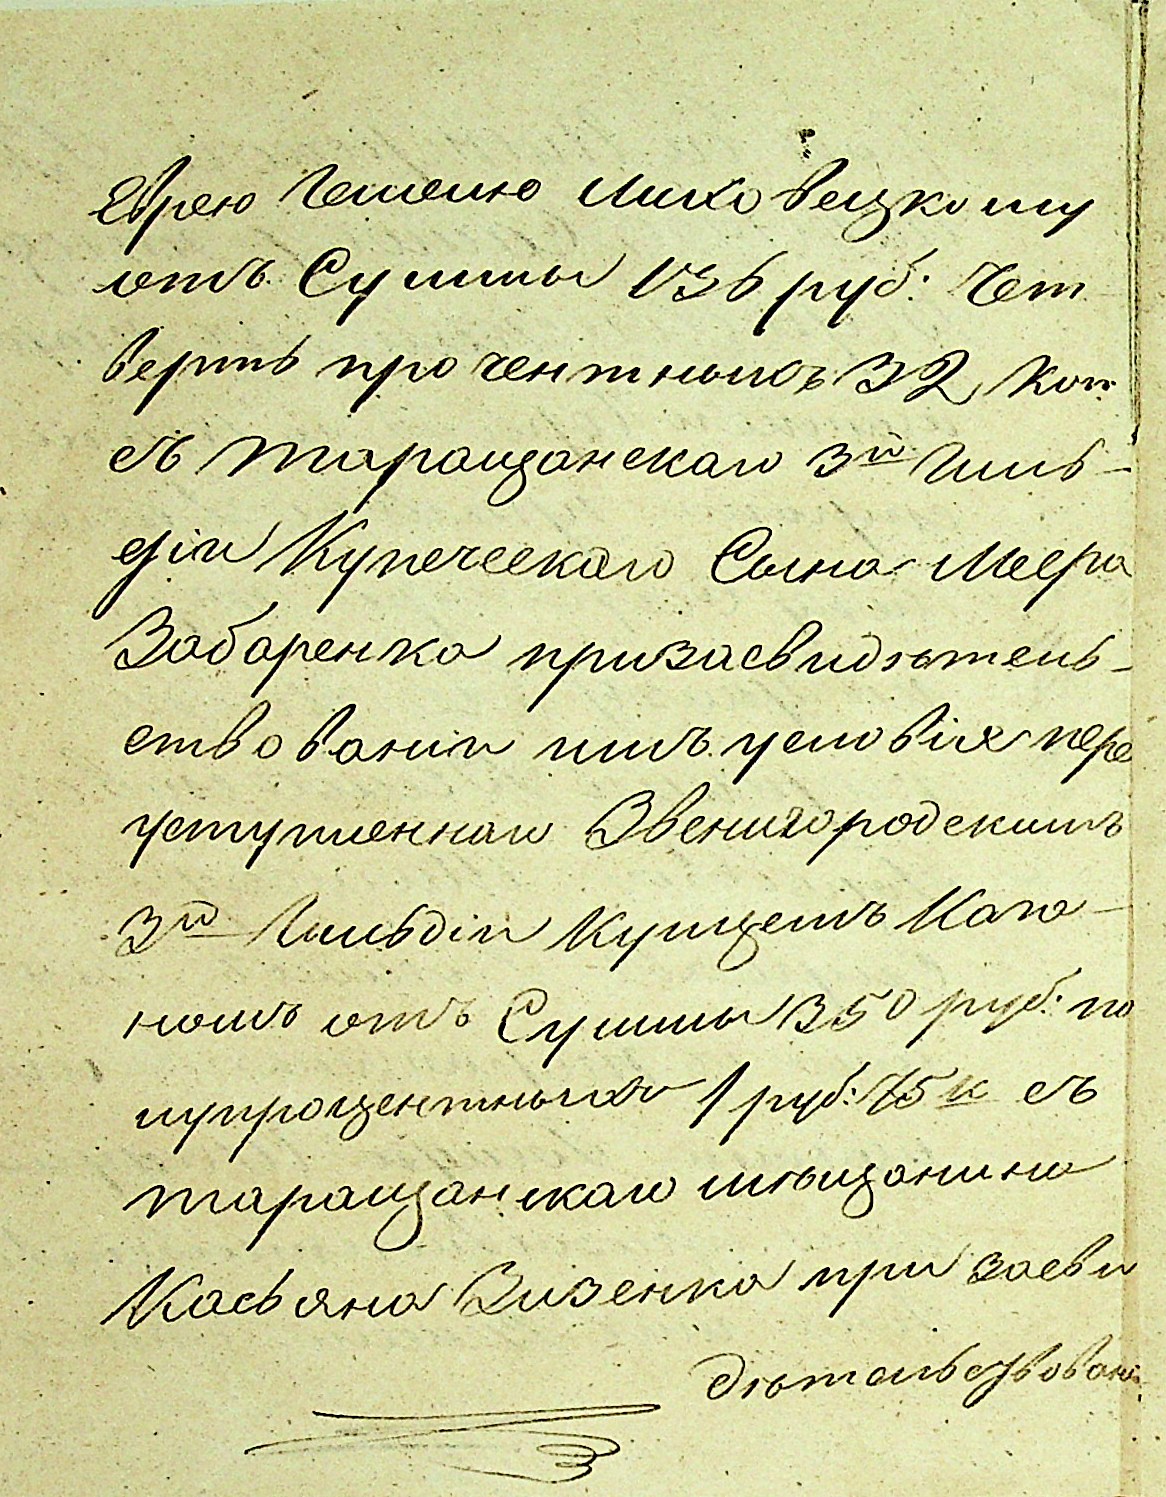 Еврею Гешелю Лиховецкому
отъ Суммы 136 руб: Чет
верть прочентныхъ 32 коп
съ таращанскаго 3й Гиль-
діи Купеческаго Сына Меера
Забаренка призасвидѣтель-
ствованіи имъ условія пере
уступленнаго Звенигородскимъ
3й Гильдіи Купцемъ Кага-
номъ отъ Суммы 350 руб: по
лупроцентныхъ 1 руб: 75 к съ
таращанскаго мѣщанина
Касьяна Зизенка при засви
дѣтельствовані